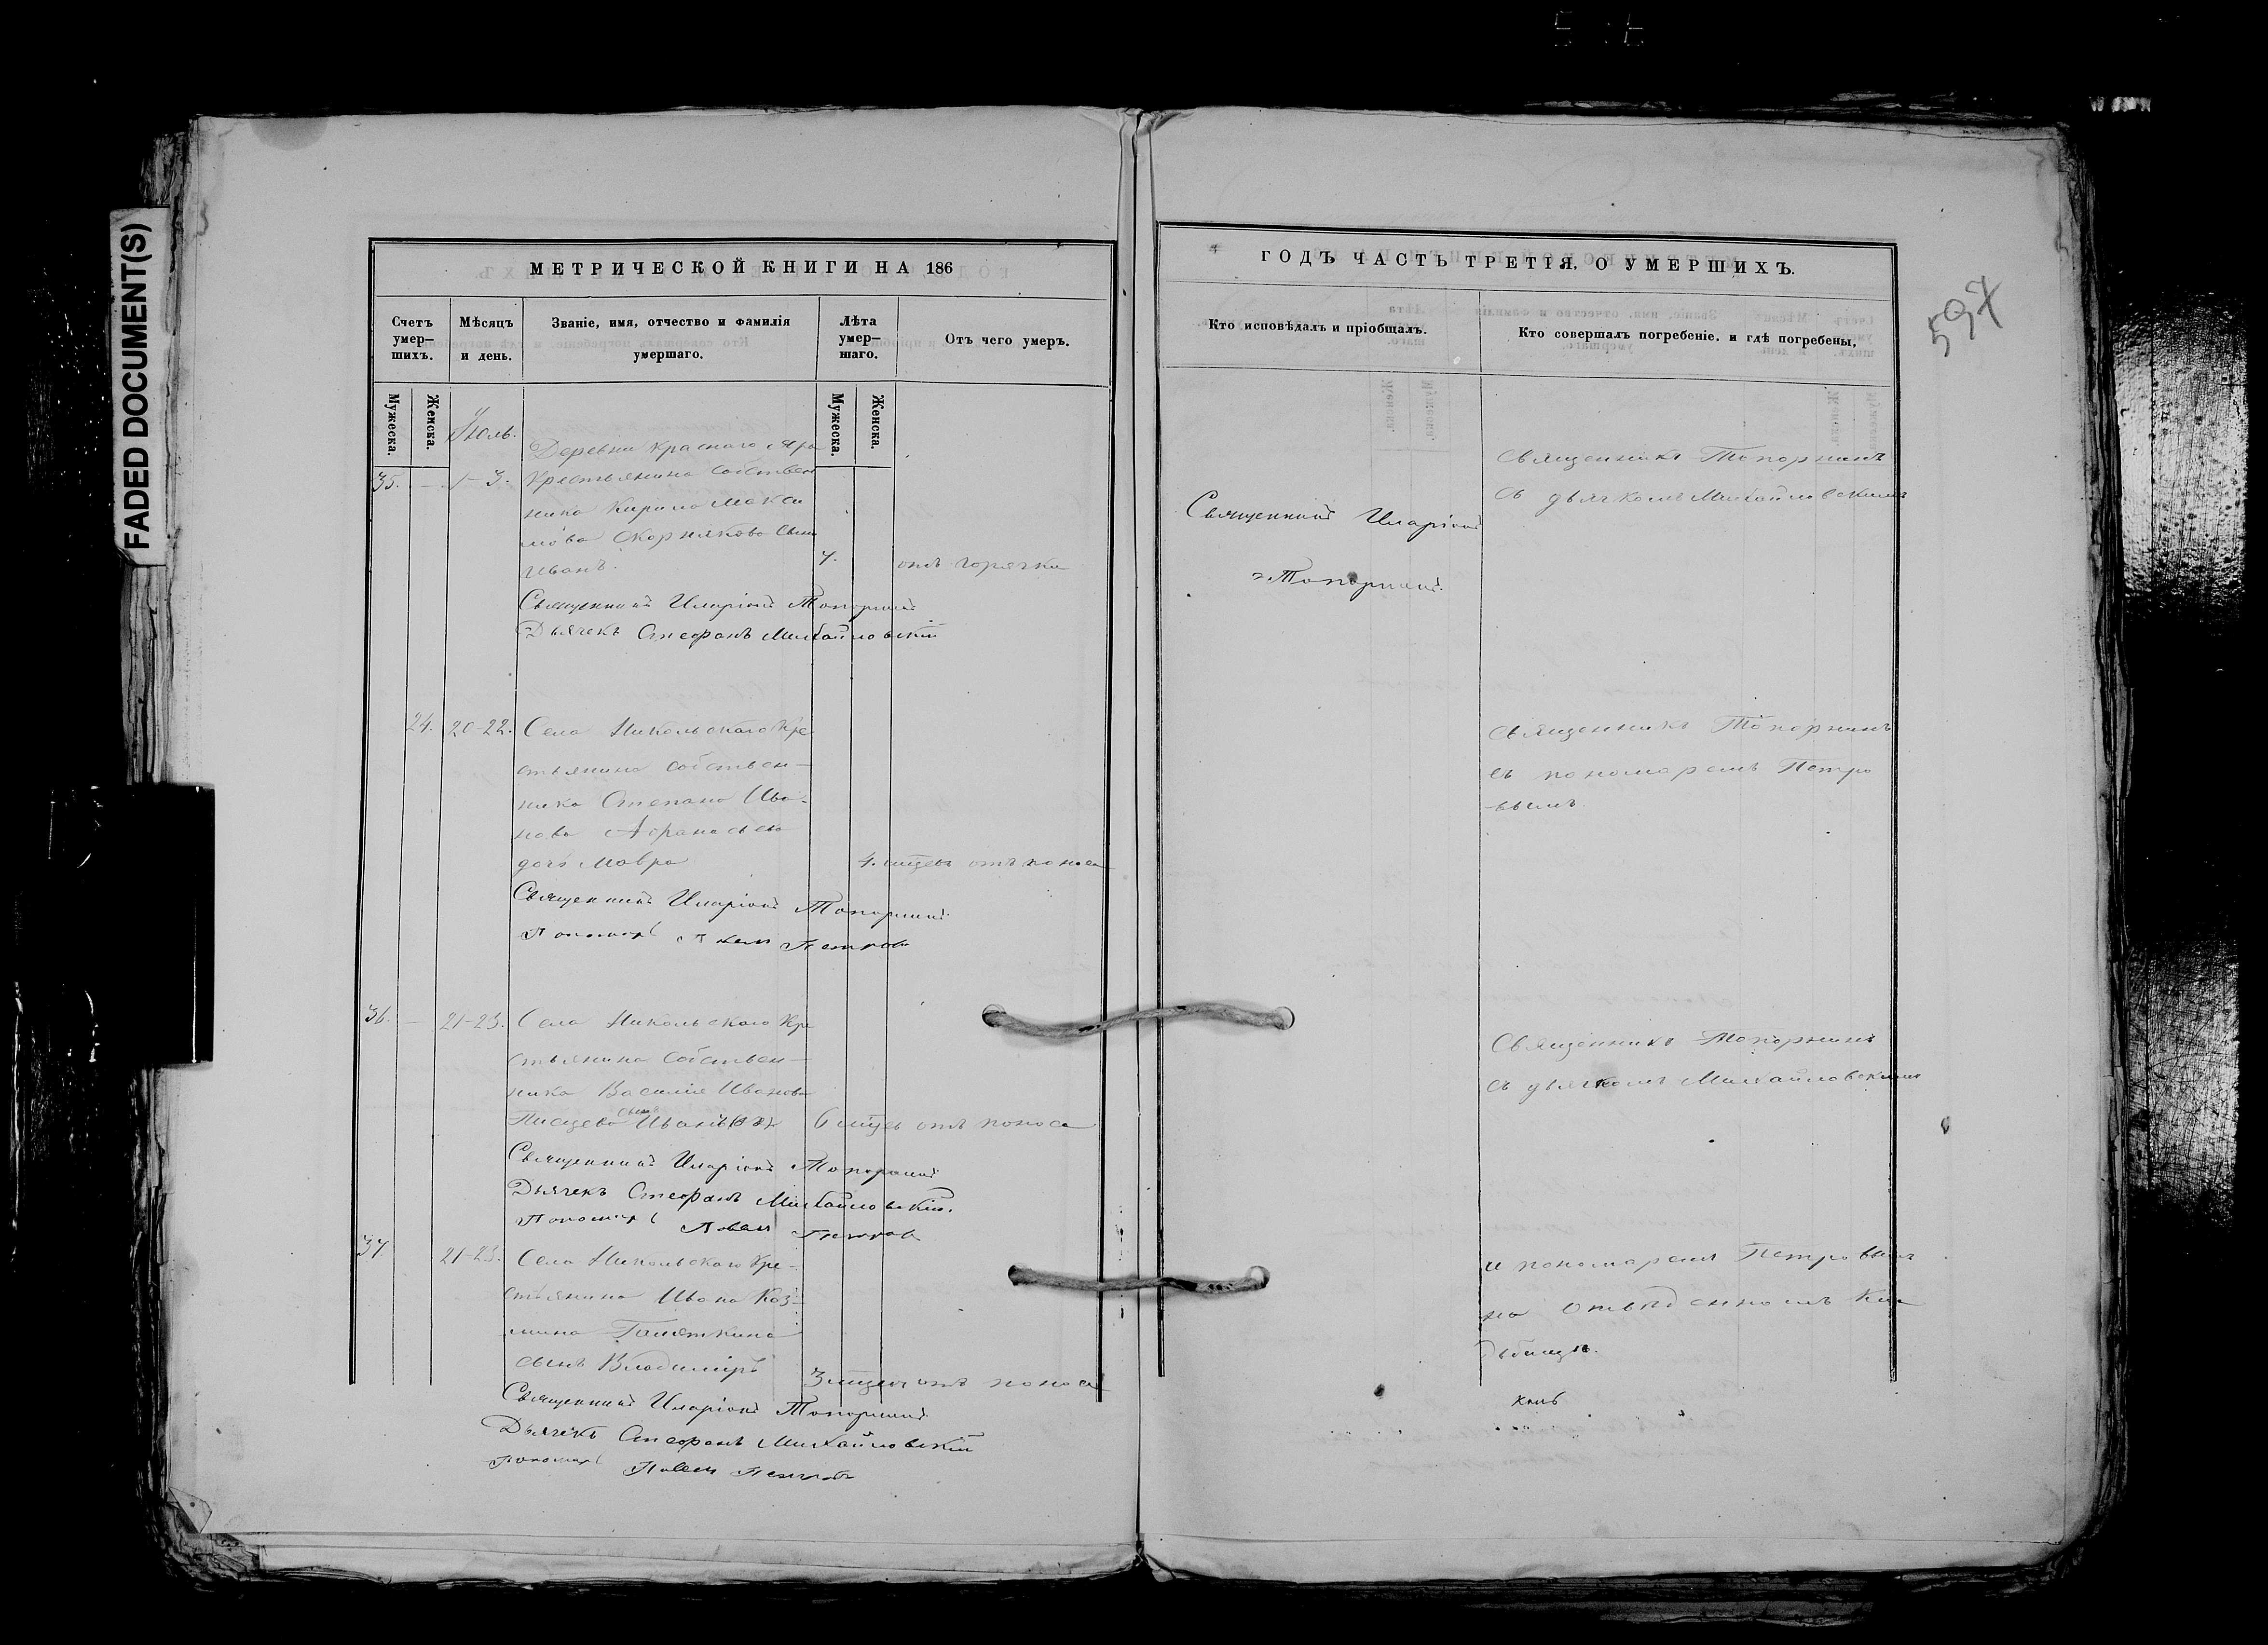 FADED DOCUMENT(S)
МЕТРИЧЕСКОЙ КНИГИ НА 186
Счетъ умер-шихъ.
Мѣсяцъ и день.
Званіе, имя, отчество и фамилія умершаго.
Лѣта умер-шаго.
Отъ чего умеръ.
Мужеска.
Женска.
Мужеска.
Женска.
Іюль.
Деревни Краснаго Яра
35. — 1-3. Крестьянина собствен
ника Кирила Макси
мова Скорнякова сынъ
Иванъ. 7. отъ горячки
Священникъ Иларіонъ Топорнинъ
Дьячекъ Стефанъ Михайловскій
24. 20-22. Села Никольскаго Кре
стьянина собствен-
ника Степана Ива-
нова Афанасьева
дочь Мавра 4. мѣсец отъ поноса
Священникъ Иларіонъ Топорнинъ
Пономарь Павелъ Петровъ
36. — 21-23. Села Никольскаго Кре
стьянина собствен-
ника Василія Иванова
сынъ
Писцева Иванъ 6 мѣсец отъ поноса
Священникъ Иларіонъ Топорнинъ
Дьячекъ Стефанъ Михайловскій.
Пономарь Павелъ Петровъ
37 21-23. Села Никольскаго Кре-
стьянина Ивана Коз-
мина
сынъ Владиміръ 3 мѣсец отъ поноса
Священникъ Иларіонъ Топорнинъ
Дьячекъ Стефанъ Михайловскій
Пономарь Павелъ Петровъ
ГОДЪ ЧАСТЬ ТРЕТІЯ, О УМЕРШИХЪ.
Кто исповѣдалъ и пріобщалъ.
Кто совершалъ погребеніе, и гдѣ погребены,
597
Священникъ Топорнинъ
съ дьячкомъ Михайловскимъ
Священникъ Иларіонъ
Топорнинъ.
Священникъ Топорнинъ
съ пономаремъ Петро
-вымъ.
Священникъ Топорнинъ
съ дьячкомъ Михайловскимъ
и пономаремъ Петровымъ
на отведенномъ кла
дбищѣ.